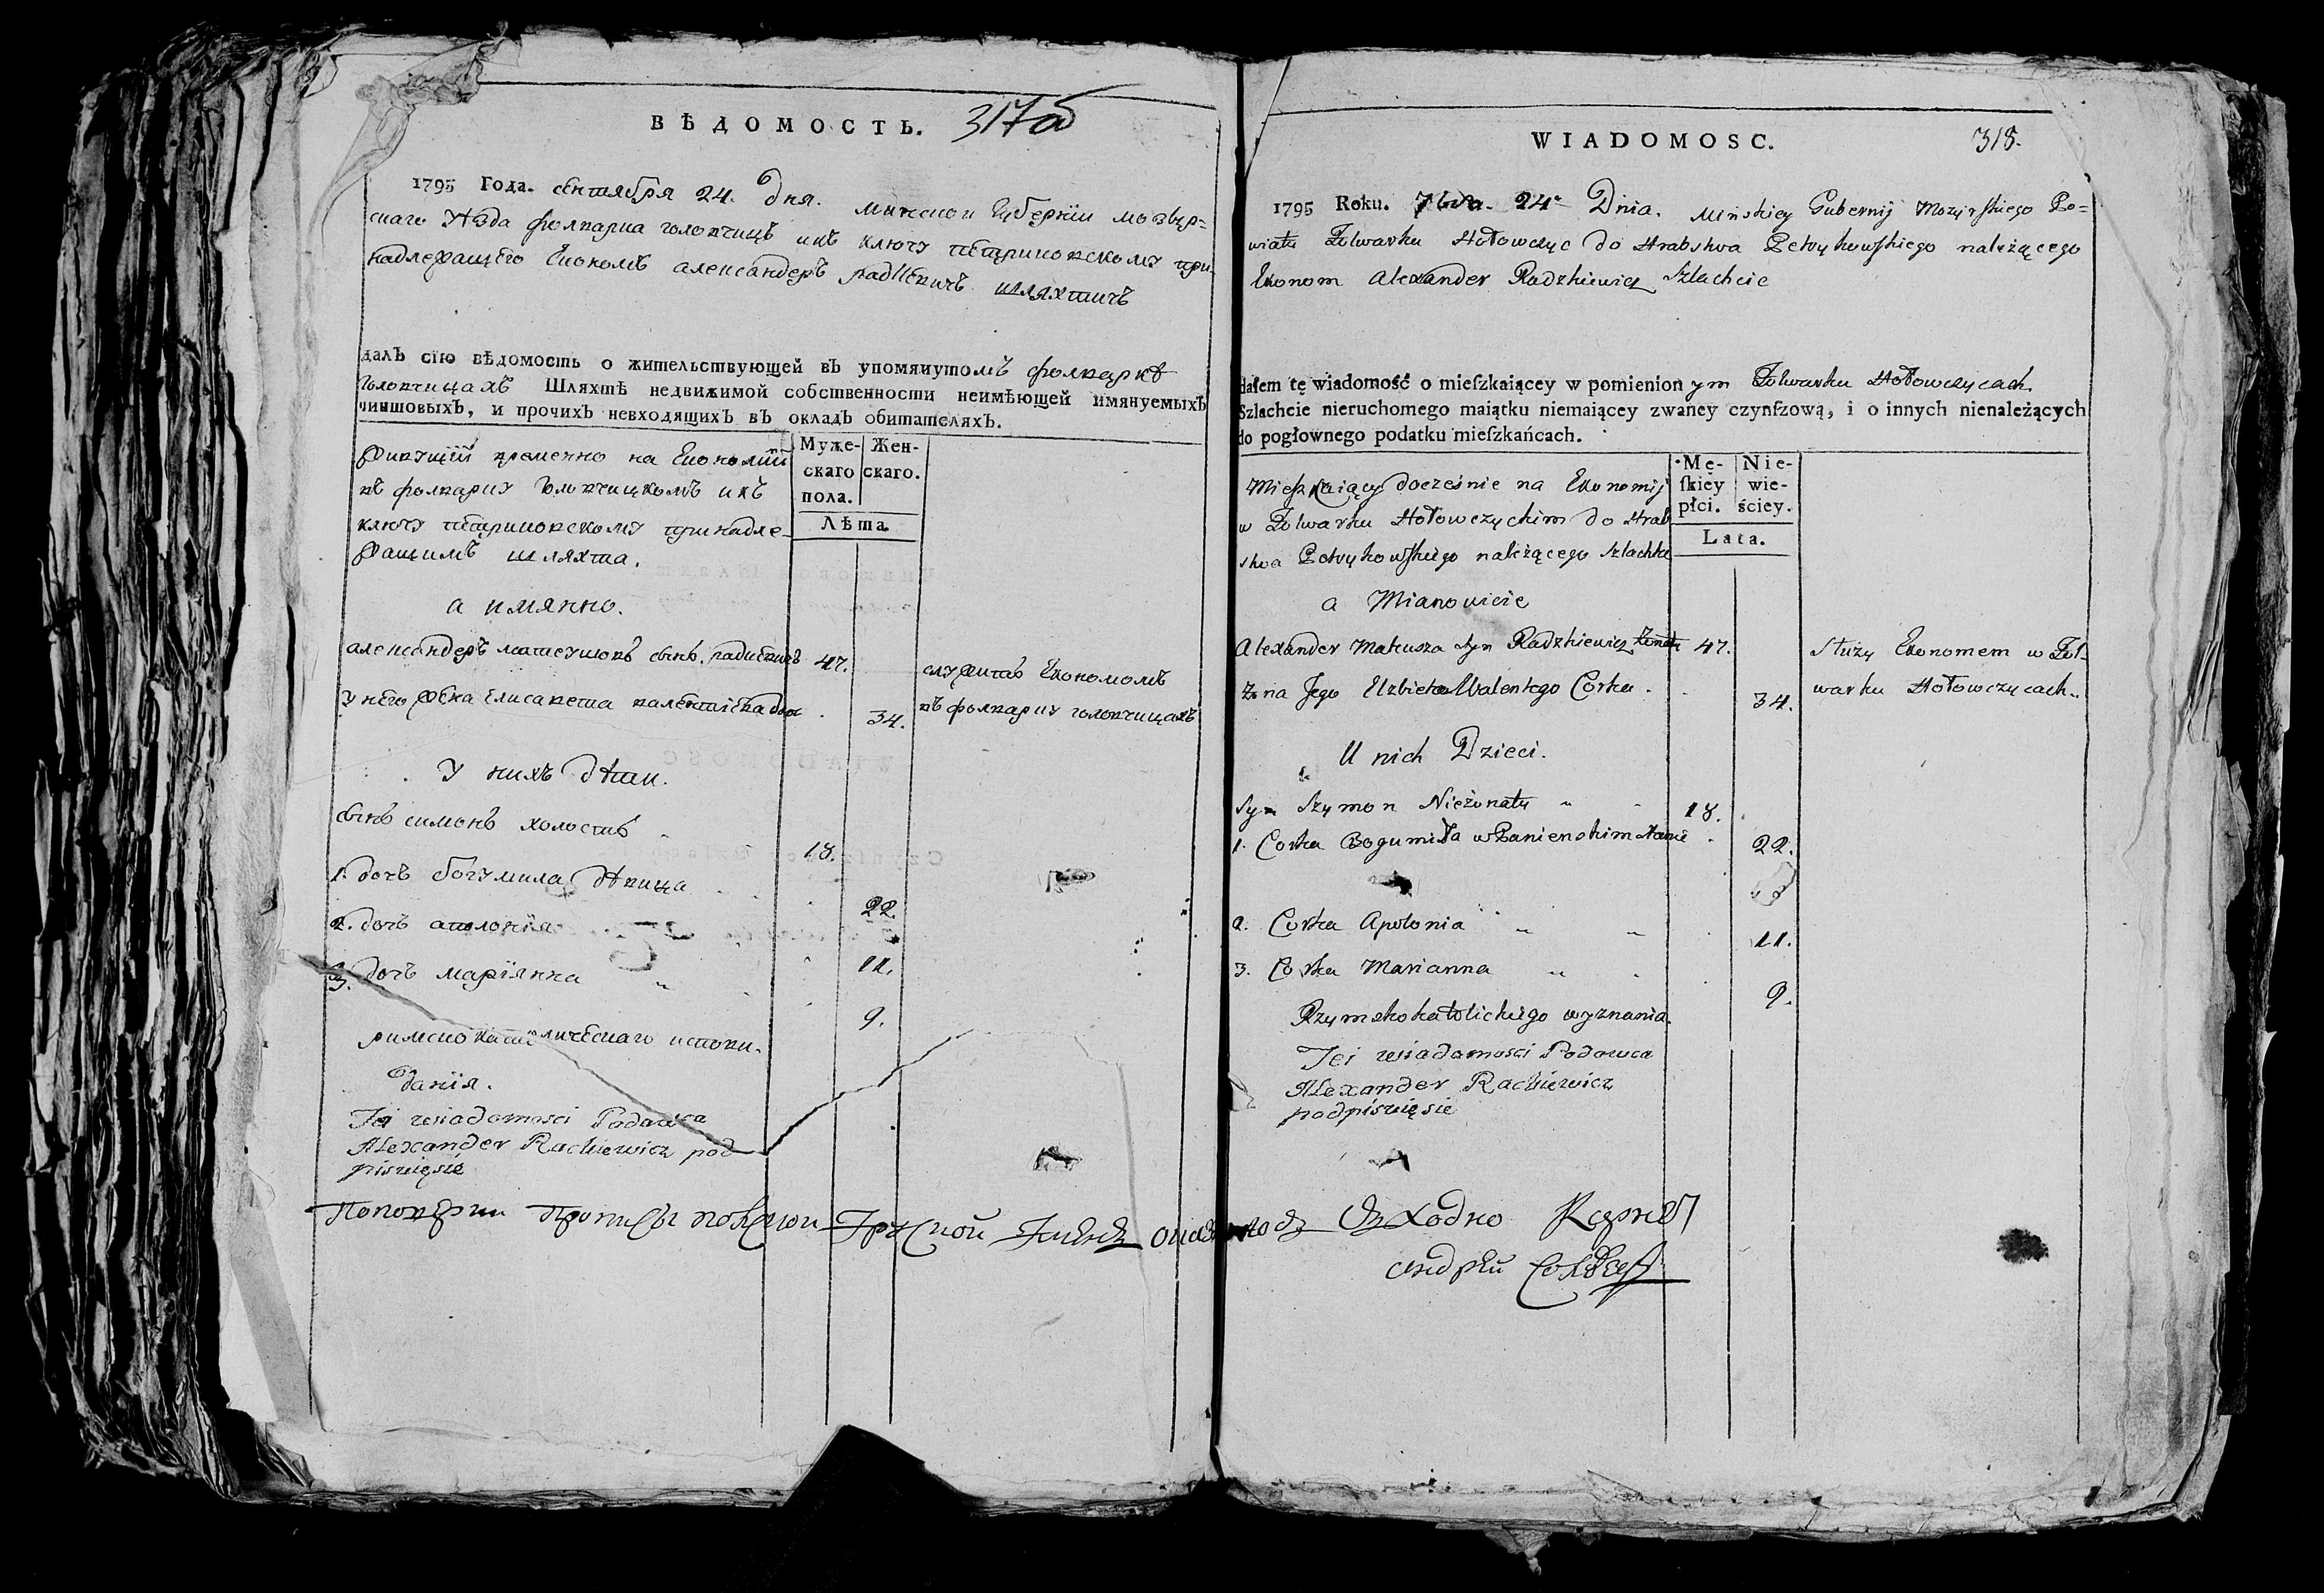 ВѢДОМОСТЬ. 317об
1795 Года. сентября 24. дня. минской губернїи мозыр=
скаго уѣзда фолварка головчицъ къ ключу петриковскому при
надлежащего економъ александеръ радкевичъ шляхтичъ
далъ сїю вѣдомость о жительствующей въ упомянутомъ фолваркѣ
головчицахъ Шляхтѣ недвижимой собственности неимѣющей имянуемыхъ
чиншовыхъ, и прочихъ невходящихъ въ окладъ обитателяхъ.
Муже- Жен-
скаго скаго.
пола.
Лѣта.
живущїй временно на Економїи
въ фолварку головчицкомъ къ
ключу петриковскому принадле-
жащимъ шляхта.
а имянно.
александеръ матеушовъ сынъ радкевичъ 47. служитъ економомъ
у него жена елисавета валентїева дочь 34. въ фолварку головчицахъ
У нихъ дѣти.
сынъ симонъ холостъ 18.
1. дочъ богумила дѣвица 22.
2. дочъ аполонїя 11.
3. дочъ марїянна 9.
римскокатоличесkаго испови-
данїя.
Jei wiadomosci Podawca
Alexander Rackiewicz pod
piswięsie
WIADOMOSC. 318.
1795 Roku. 7bra. 24 Dnia. Mińskiey Gubernij Mozyrskiego Po=
wiatu Folwarku Hołowczyc do Hrabstwa Petrykowskiego należącego
Ekonom Alexander Radzkiewicz Szlachcic
dałem tę wiadomość o mieſzkaiącey w pomienionym Folwarku Hołowczycach
Szlachcie nieruchomego maiątku niemaiącey zwaney czynſzową, i o innych nienależących
do pogłownego podatku mieſzkańcach.
Mę- Nie-
ſkiey wie-
płci. ściey.
Lata.
Mieszkaiący docześnie na Ekonomij
w Folwarku Hołowczyckim do Hrab
stwa Petrykowskiego należącego Szlachta
a Mianowicie
Alexander Mateusza Syn Radzkiewicz Żonaty 47. Służy Ekonomem w Fol-
Żona Jego Elzbieta Walentego Corka 34. warku Hołowczycach
U nich Dzieci.
Syn Szymon Nieżonaty 18.
1. Corka Bogumiła w Panienskim stanie 22.
2. Corka Apolonia 11.
3. Corka Marianna 9.
Rzymskokatolickiego wyznania.
Jei wiadomosci Podawca
Alexander Rackiewicz
podpiswięsie
андрей